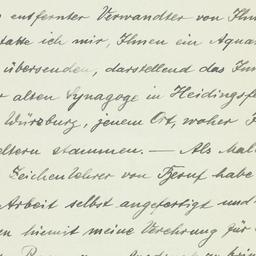 entfernter Verwandter von Ihn
tatte ich mir, Ihnen ein Aquar
übersenden, darstellend das Inn
r alten Synagoge in Heidingsfe
Würzburg, jenem Ort, woher I
eltern stammen. — Als Mal
Zeichenlehrer von Beruf habe
Arbeit selbst angefertigt und
en hiemit meine Verehrung für